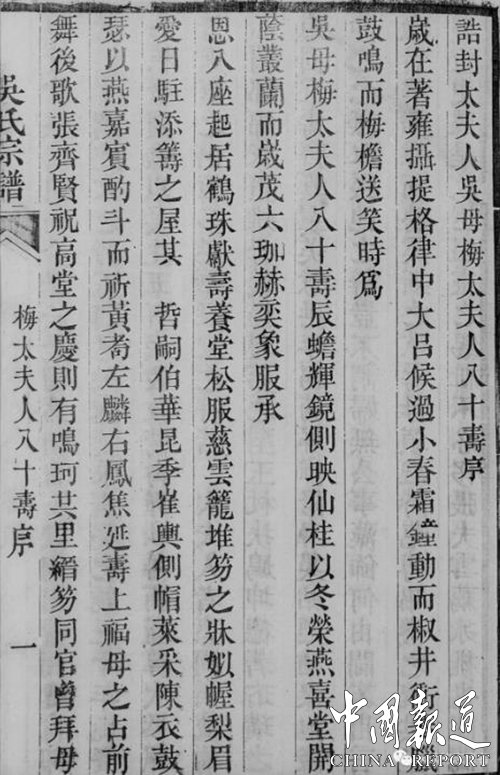 誥封太夫人吳母梅太夫人八十壽序
歲在著雍攝提格律中大呂候過小春霜鐘動而椒井
鼓鳴而梅檐送笑時爲
吳母梅太夫人八十壽辰蟾輝鏡側映仙桂以冬榮燕喜堂開
蔭叢蘭而歲茂六珈赫奕象服承
恩八座起居鶴珠獻壽養堂松服慈雲籠堆笏之牀姒幄梨眉
愛日駐添籌之屋其　哲嗣伯華昆季崔輿側帽萊采陳衣鼓
瑟以燕嘉賓酌斗而祈黃耈左麟右鳳焦延壽上福母之占前
舞後歌張齊賢祝高堂之慶則有鳴珂共里縉笏同官曾拜母
梅太夫人八十壽序
一
吳氏宗譜
中國報道
CHINA REPORT